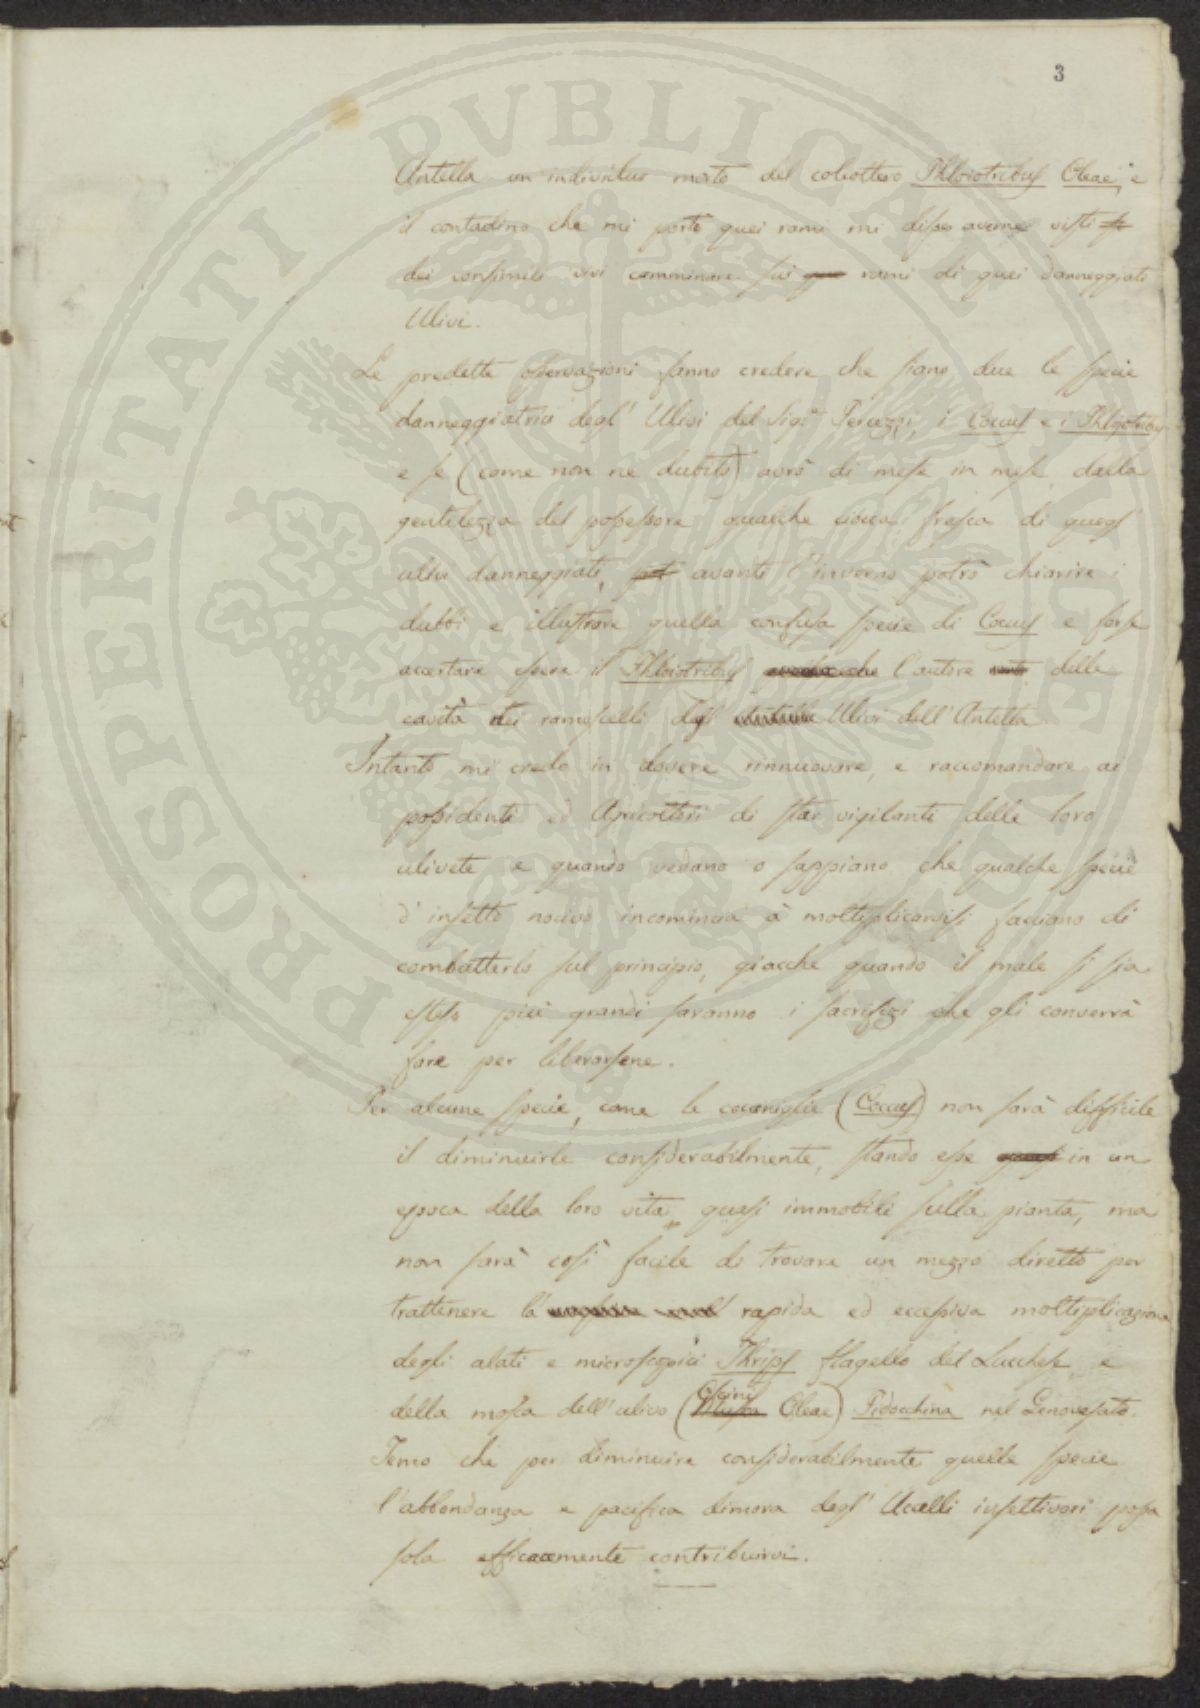 3
Antella un individuo morto del coleottero Phloiotribus Oleae, e
il contadino che mi portò quei rami mi disse averne visti
dei consimili vivi camminare sui rami di quei danneggiati
Ulivi.
Le predette osservazioni fanno credere che siano due le specie
danneggiatrici degl' Ulivi del Sigr Peruzzi, i Coccus e i Phloiotribus
e se (come non ne dubito) avrò di mese in mese dalla
gentilezza del possessore qualche ciocca fresca di quegl'
ulivi danneggiati, avanti l'inverno potrò chiarire i
dubbi e illustrare quella confusa specie di Coccus e forse
accertare essere il Phloiotribus l'autore delle
cavità dei ramoscelli degl' Ulivi dell'Antella
Intanto mi credo in dovere rinnuovare, e raccomandare ai
possidenti ed Agricoltori di star vigilanti delle loro
ulivete e quando vedano o sappiano che qualche specie
d'insetto nocivo incomincia à moltiplicarvisi facciano di
combatterlo sul principio, giacche quando il male si sia
esteso più grandi saranno i sacrifizi che gli converrà
fare per liberarsene.
Per alcune specie, come le cocciniglie (Coccus) non sarà difficile
il diminuirle considerabilmente, stando esse in un
epoca della loro vita, quasi immobili sulla pianta, ma
non sarà così facile di trovare un mezzo diretto per
trattenere la rapida ed eccessiva moltiplicazione
degli alati e microscopici Thrips flagello del Lucchese, e
della mosca dell'ulivo (Musca Oleae) Pidocchina nel Genovesato.
Temo che per diminuire considerabilmente quelle specie
l'abbondanza e pacifica dimora degl' Ucelli insettivori possa
sola efficacemente contribuirvi.
PROSPERITATI PVBLICAE AVGENDAE